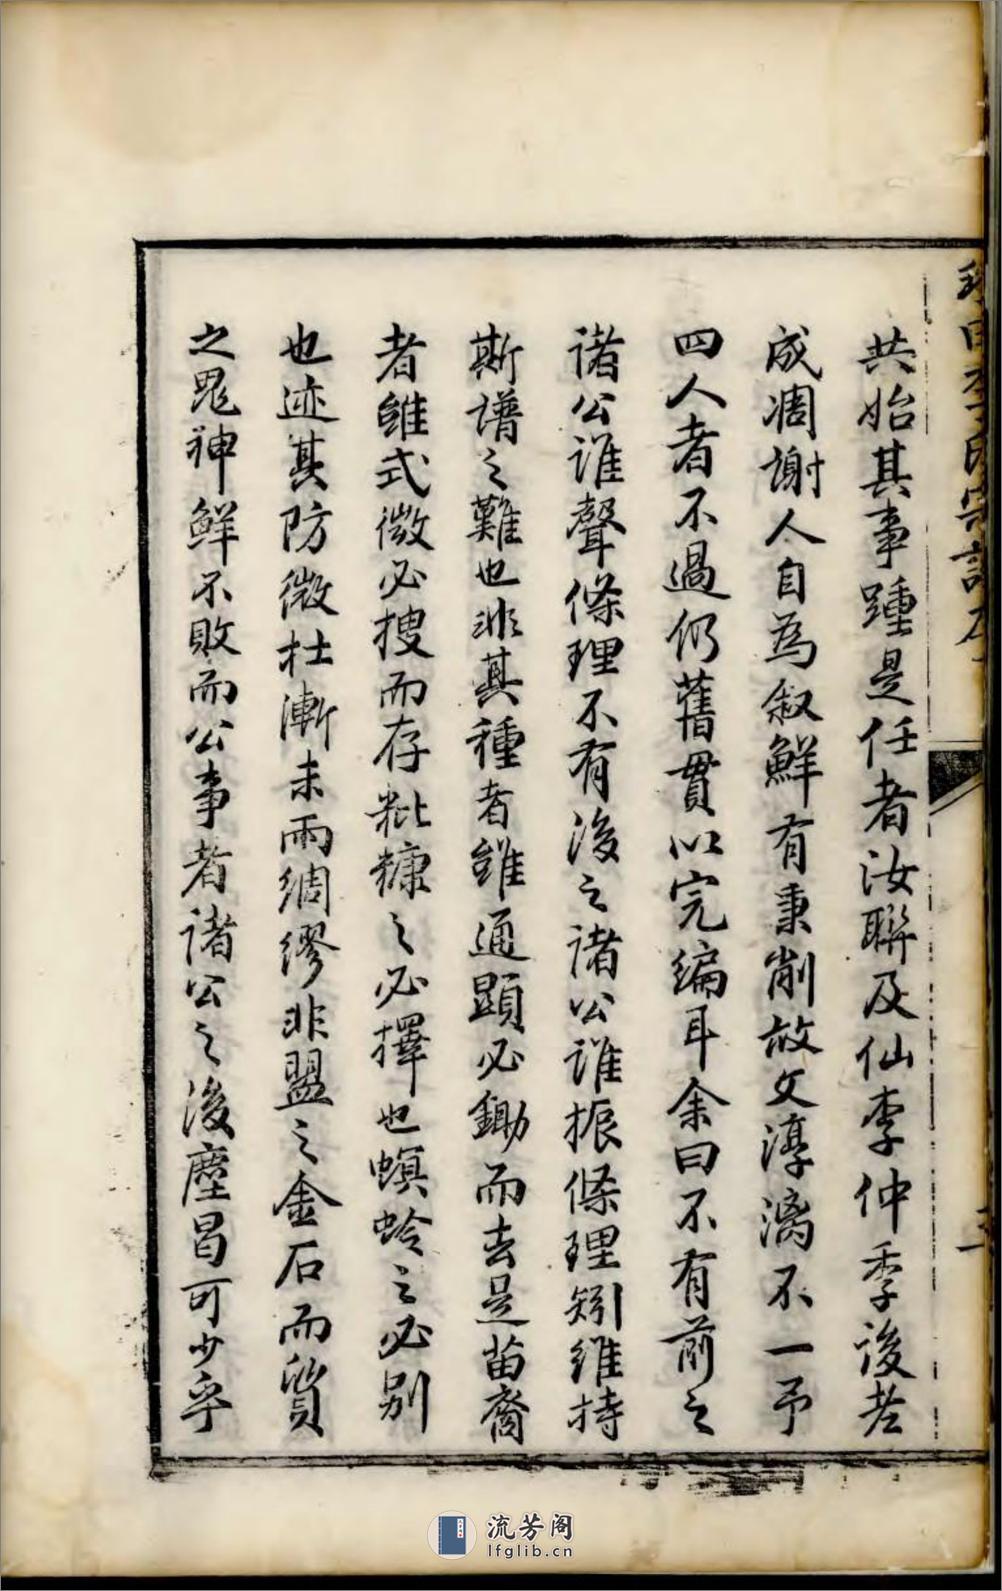 共始其事踵是任者汝聯及仙李仲季後老
成凋謝人自為叙鮮有秉削故文淳漓不一予
四人者不過仍舊貫以完編耳余曰不有前之
諸公誰聲條理不有後之諸公誰振條理矧維持
斯譜之難也非其種者雖通顯必鋤而去是苗裔
者雖式微必搜而存粃糠之必擇也螟蛉之必別
也迹其防微杜漸未雨綢繆非盟之金石而質
之鬼神鮮不敗而公事者諸公之後塵曷可少乎
流芳阁
lfglib.cn